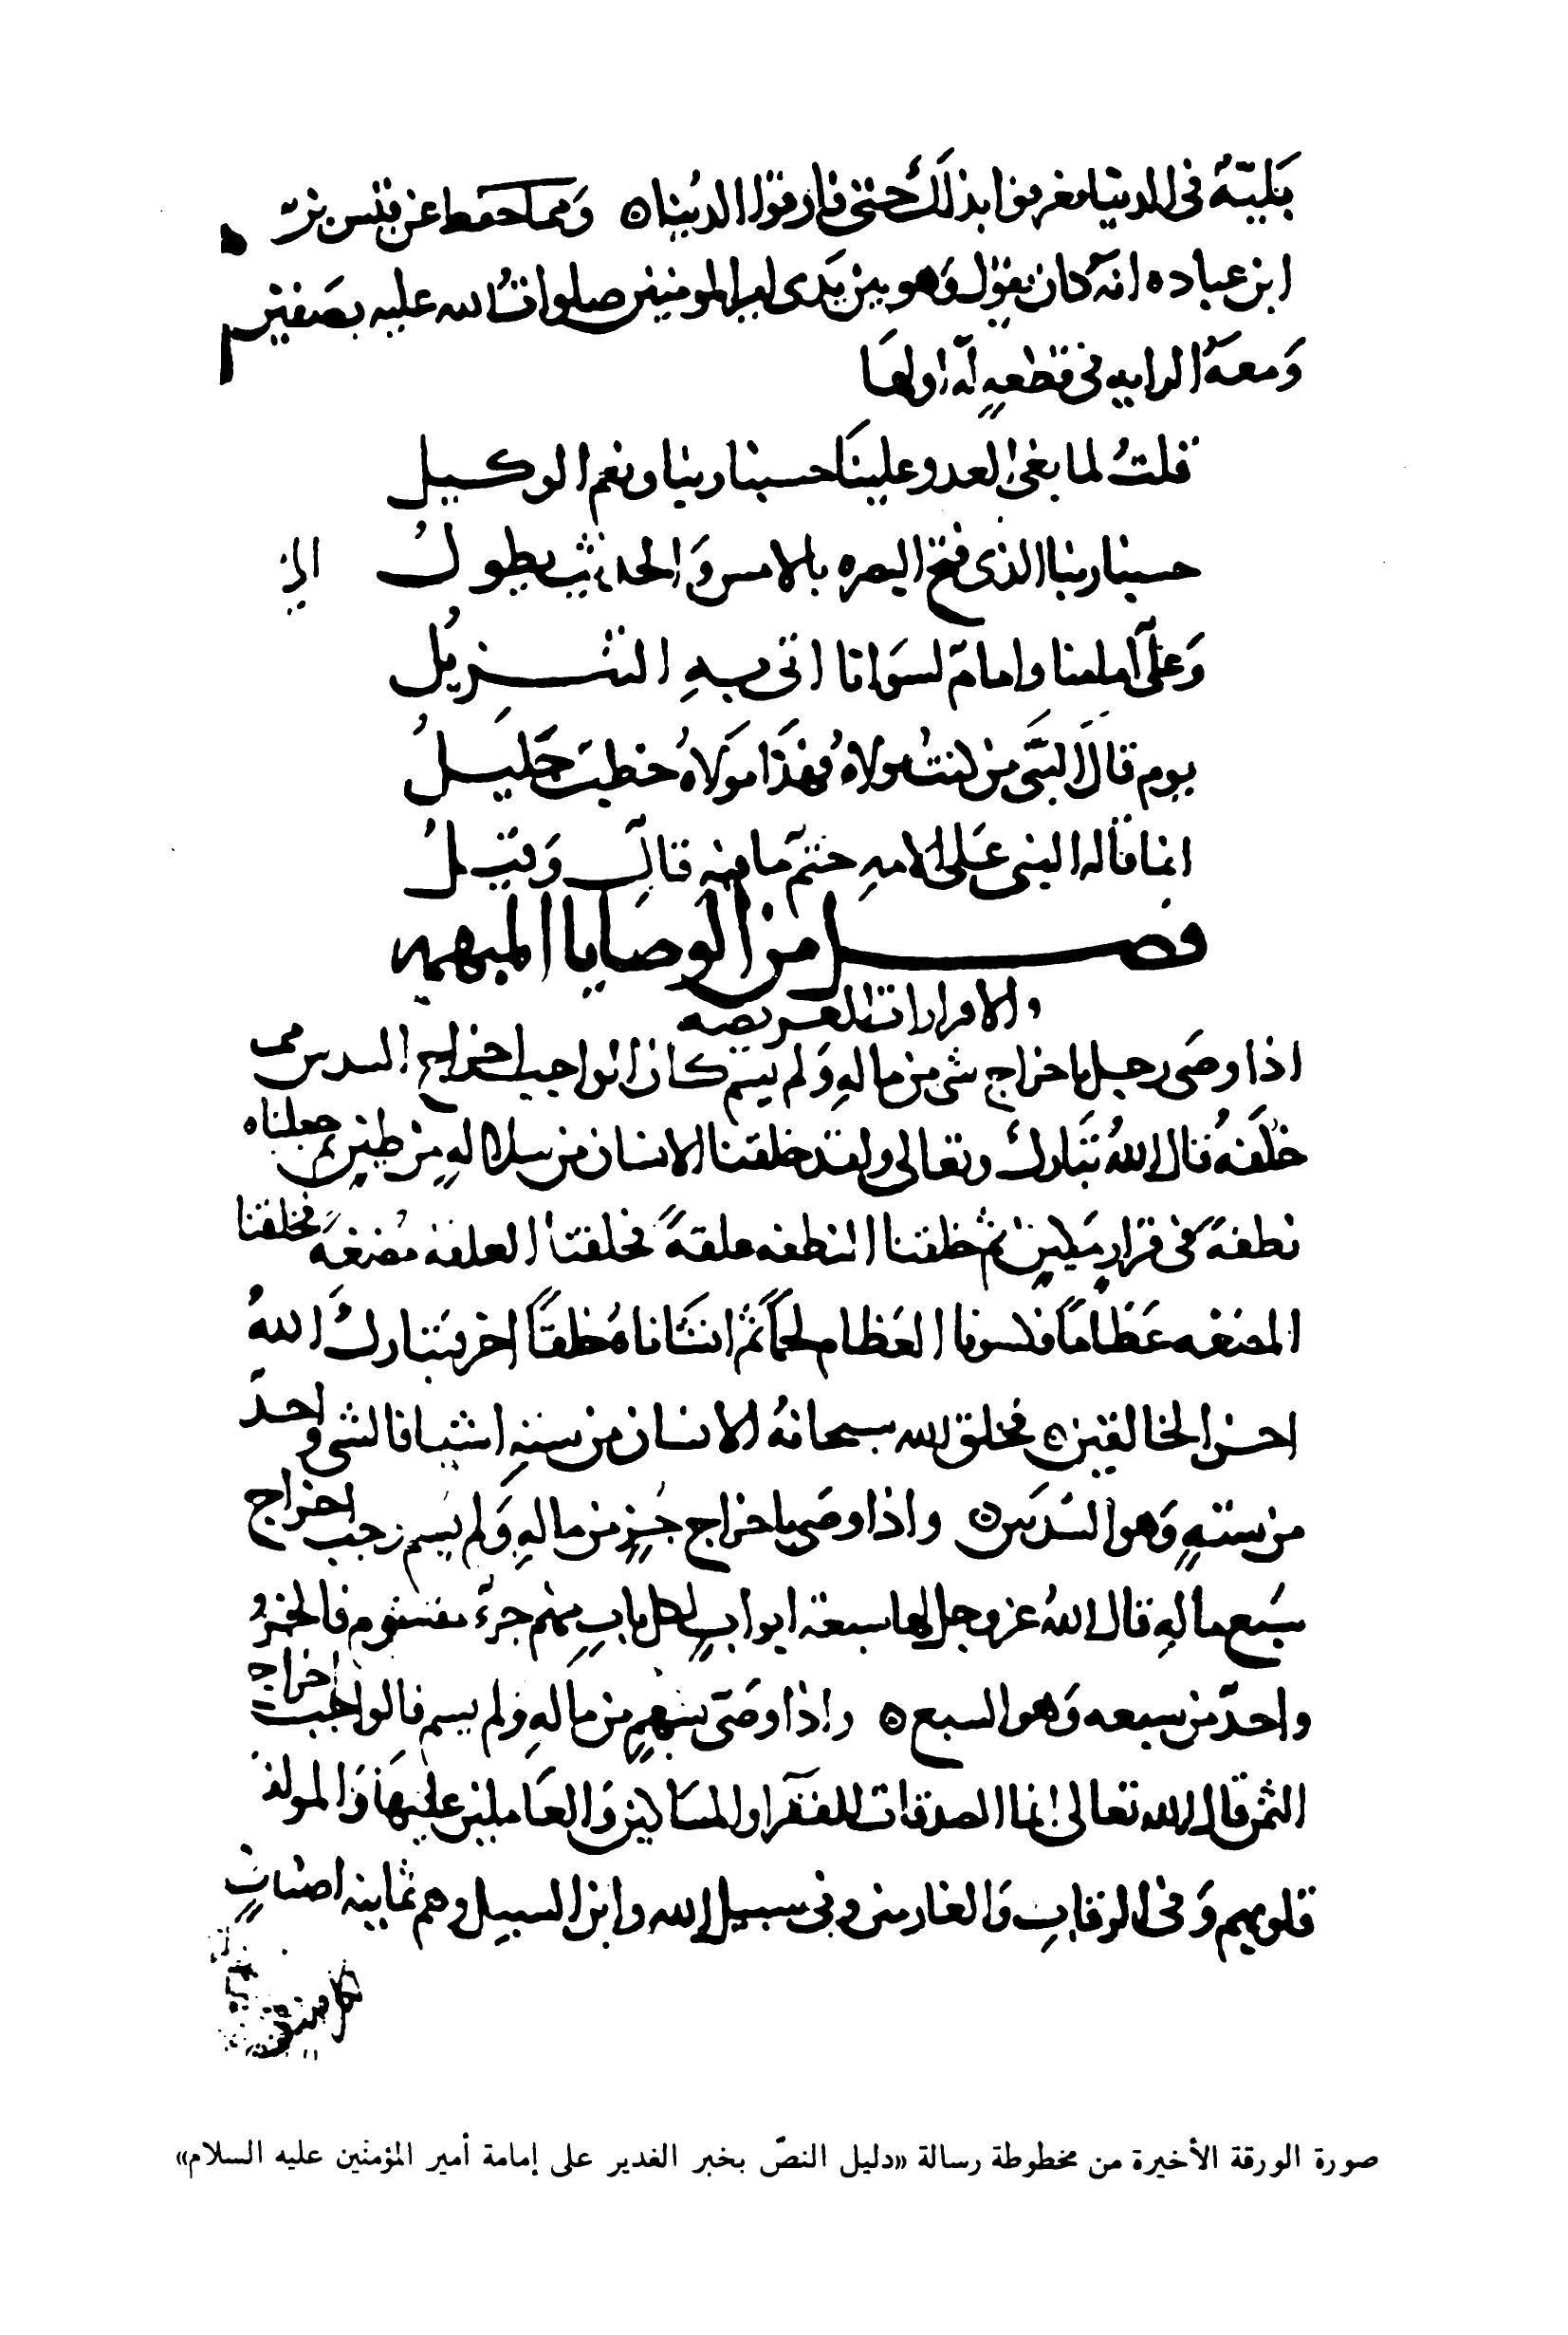 بلية في الدنيا معرفوا بذلك حتى فارقوا الدنيا ه ومما حفظ عن قيس بن
ابن عباده انه كان يقول وهو بين يدي امير المومنين صلوات الله عليه بصفين
ومعه الرايه في قطعةٍ له اولها
قلتُ لما بغى العدو علينا حسبنا ربنا ونعم الوكيل
حسبنا ربنا الذي فتح البصره بالامس وَالحديث يطول
وَعلي امامنا وامام لسوانا اتى به التنزيل
يوم قال النبي من كنت مولاهُ فهذا مولاهُ خطب جليل
انما قاله النبي على الامه حتم ما فيه قال وقيل
فصل من الوصايا المبهمه
والاقرارات العريصه
اذا وصى رجل باخراج شي من ماله ولم يسم كان الواجب اخراج السدس مما
خلفه قال الله تبارك وتعالى ولقد خلقنا الانسان من سلالهٍ من طينٍ ثم جعلناه
نطفهً في قرارٍ مكينٍ ثم خلقنا النطفه علقهً فخلقنا العلقه مضغهً فخلقنا
المضغه عظاماً فكسونا العظام لحماً ثم انشاناه خلقاً اخر فتبارك اللهُ
احسن الخالقين ه فخلق الله سبحانه الانسان من ستهِ اشيا فالشي واحد
من ستهٍ وَهو السدس ه واذا وصى باخراج جزءٍ من ماله ولم يسم وجب اخراج
سبع ماله قال اللهُ عز وجل لها سبعة ابوابٍ لكل بابٍ منهم جزء مقسوم فالجزوُ
واحد من سبعه وَهو السبع ه واذا وصى بسهمٍ من ماله ولم يسم فالواجب اخراج
الثمن قال الله تعالى انما الصدقات للفقرا والمساكين وَالعاملين عليها وَالمولفه
قلوبهم وَفي الرقاب وَالغارمين وفي سبيل الله وابن السبيل وهم ثمانيه اصنافٍ
صورة الورقة الأخيرة من مخطوطة رسالة «دليل النصّ بخبر الغدير على إمامة أمير المؤمنين عليه السلام»